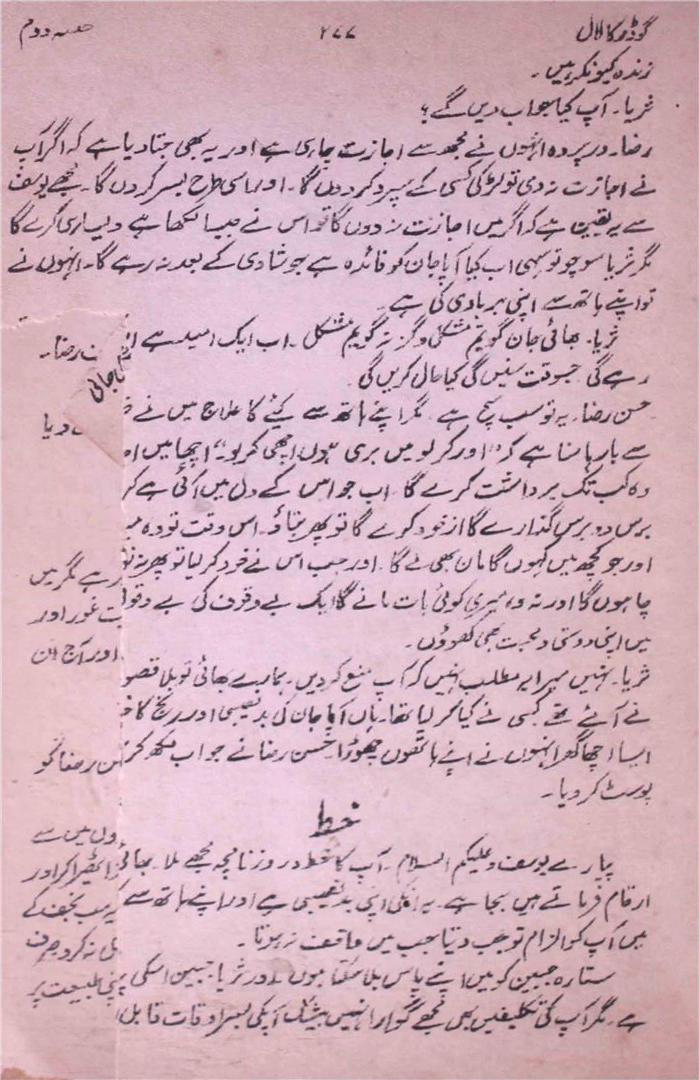 گوڈر کا لال ۲۷۷ حصہ دوم
زندہ کیونکر ہیں۔
ثریا۔ آپ کیا جواب دیں گے؟
رضا۔ در پردہ انہوں نے مجھ سے اجازت چاہی ہے اور یہ بھی جتا دیا ہے کہ اگر آپ
نے اجازت نہ دی تو لڑکی کسی کے سپرد کر دوں گا۔ اور اسی طرح بسر کر دوں گا۔ مجھے یوسف
سے یہ یقین ہے کہ اگر میں اجازت نہ دوں گا تو اس نے جیسا لکھا ہے ویسا ہی کرے گا
مگر ثریا سوچو تو سہی اب کیا آپا جان کو فائدہ ہے جو شادی کے بعد نہ رہے گا۔ انہوں نے
تو اپنے ہاتھ سے اپنی بربادی کی ہے
ثریا۔ بھائی جان گویم مشکل وگر نہ گویم مشکل۔ اب ایک امید ہے
رہے گی جسوقت سنیں گی کیا حال کریں گی
حسن رضا۔ یہ تو سب سچ ہے۔ مگر اپنے ہاتھ سے کئے کا علاج میں نے
سے بارہا سنا ہے کہ "اور کر لو میں بری ہوں اچھی کر لو" اچھا میں
وہ کب تک برداشت کرے گا۔ اب جو اس کے دل میں آئی ہے
برس دو برس گذارے گا از خود کرے گا تو پھر بتاؤ۔ اس وقت تو وہ
اور جو کچھ میں کہوں گا مان بھی لے گا۔ اور جب اس نے خود کر لیا تو پھر نہ
چاہوں گا اور نہ وہ میری کوئی بات مانے گا ایک بے وقوف کی بے
میں اپنی دوستی و محبت بھی کھوؤں۔
ثریا۔ نہیں میرا یہ مطلب نہیں کہ آپ منع کر دیں۔ ہمارے بھائی تو بلا قصور
نے آئے تھے کسی نے کیا کر لیا تھا۔ ہاں آپا جان کی بدنصیبی اور رنج کا
ایسا اچھا گھر انہوں نے اپنے ہاتھوں چھوڑا۔ حسن رضا نے جواب لکھ کر
پوسٹ کر دیا۔
خط
پیارے یوسف وعلیکم السلام۔ آپ کا خط در روزنامچہ مجھے ملا۔ بھائی
ارقام فرماتے ہیں بجا ہے۔ یہ انکی اپنی بدنصیبی ہے اور اپنے ہاتھ سے
میں آپ کو الزام تو جب دیتا جب میں واقف نہ ہوتا۔
ستارہ جبین کو میں اپنے پاس بلا سکتا ہوں اور ثریا جبین اسکی
ہے۔ مگر آپ کی تکلیفیں بھی مجھے گوارا نہیں بیشک آپکی بسر اوقات قابل